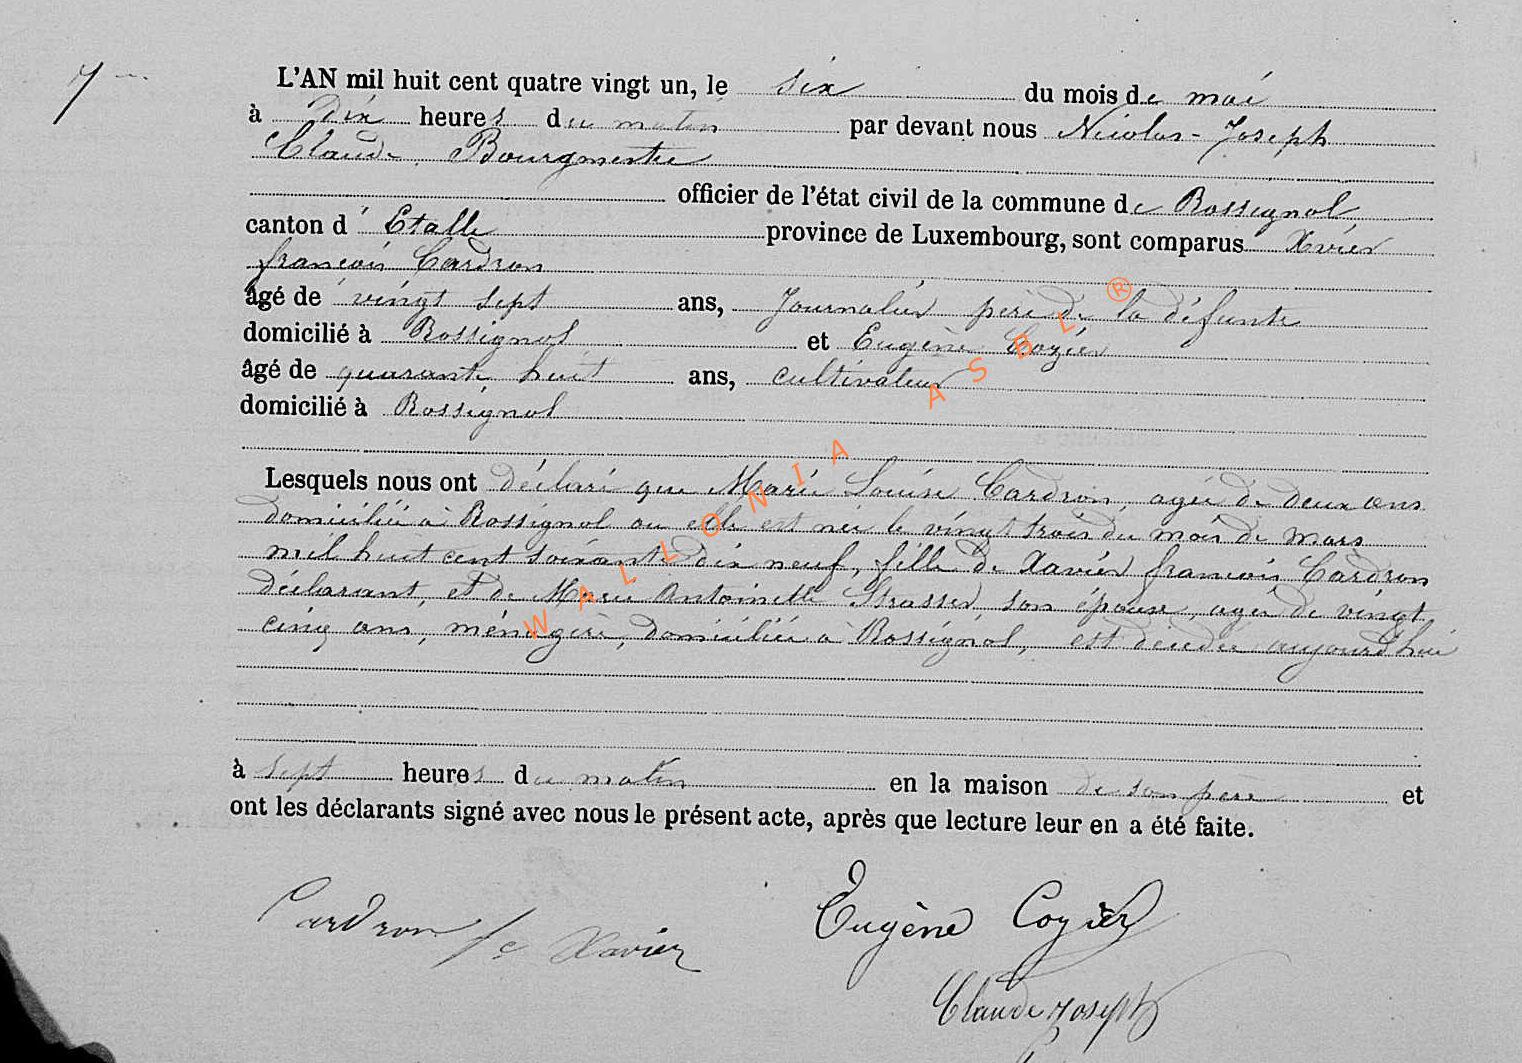 7
L'AN mil huit cent quatre vingt un, le six du mois de mai
à dix heures du matin par devant nous Nicolas-Joseph
Claude, Bourgmestre
officier de l'état civil de la commune de Rossignol
canton d'Etalle province de Luxembourg, sont comparus Xavier
françois Cardron
âgé de vingt sept ans, Journalier père de la défunte
domicilié à Rossignol et Eugène Cozier
âgé de quarante huit ans, cultivateur
domicilié à Rossignol
Lesquels nous ont déclaré que Marie Louise Cardron, agée de deux ans
domiciliée à Rossignol ou elle est née le vingt trois du mois de mars
mil huit cent soixante dix neuf, fille de Xavier françois Cardron
déclarant, et de Marie Antoinette Strasser son épouse, agée de vingt
cinq ans, ménagère, domiciliée à Rossignol, est décédée aujourd'hui
à sept heures du matin en la maison de son père et
ont les déclarants signé avec nous le présent acte, après que lecture leur en a été faite.
Cardron fc Xavier
Eugène Cozier
Claude Joseph
WALLONIA ASBL ®